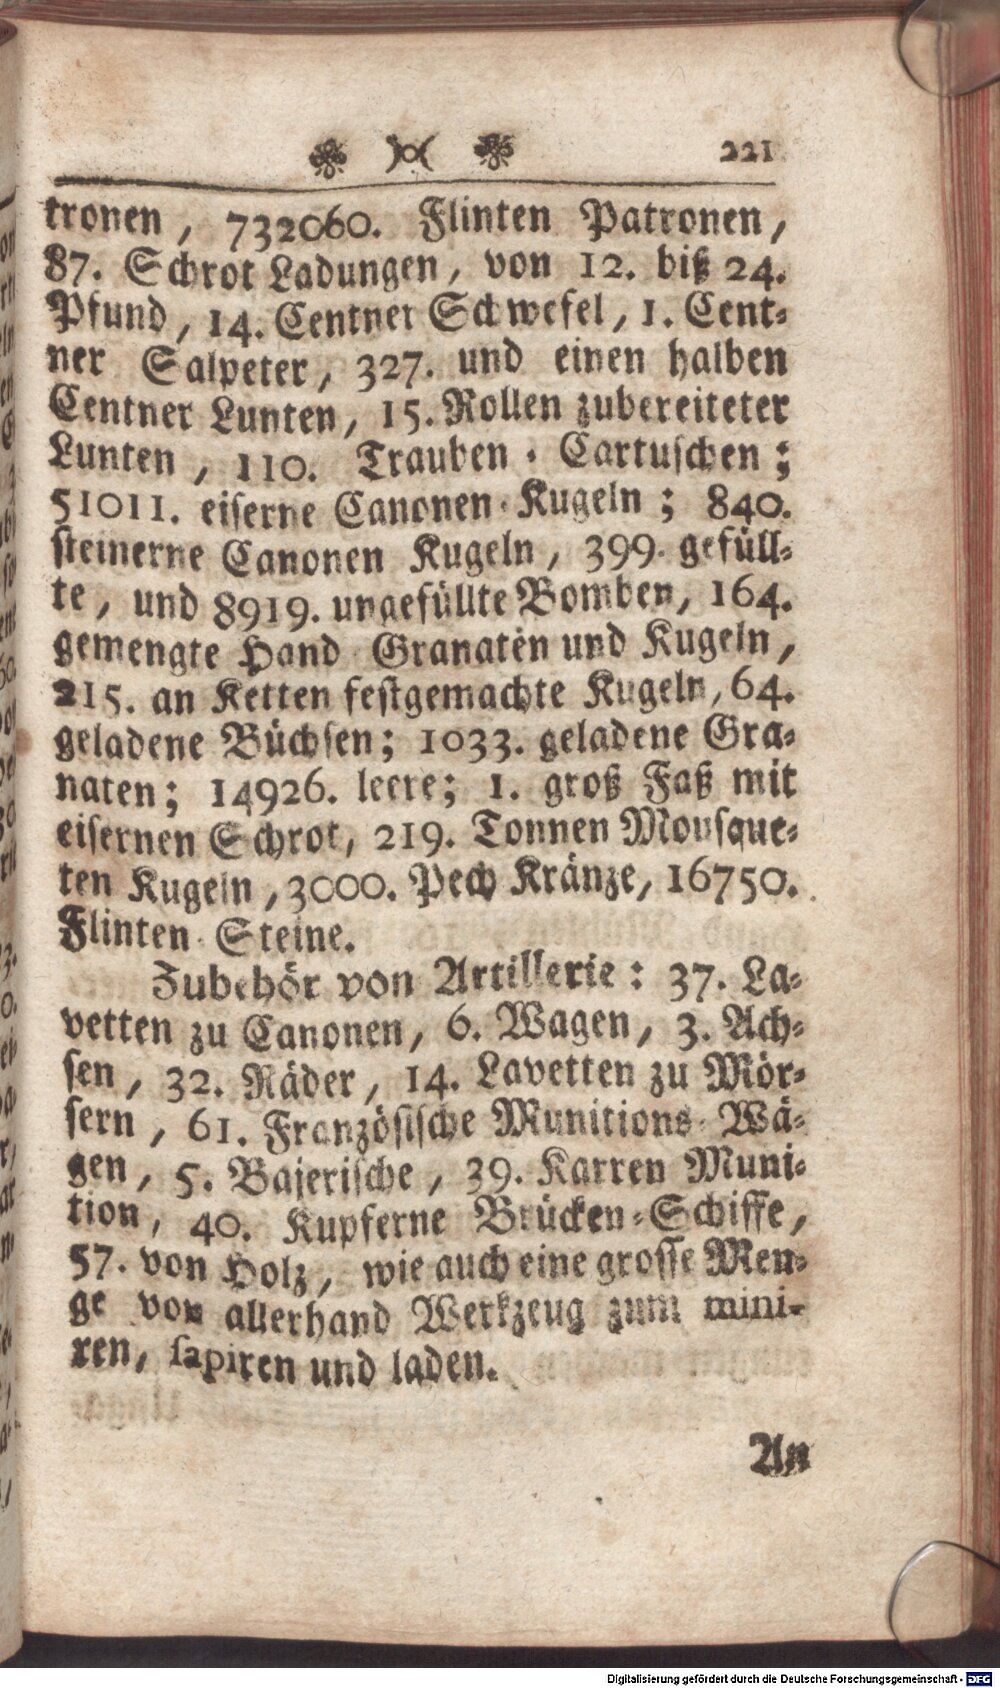 221
tronen, 732060. Flinten Patronen,
87. Schrot Ladungen, von 12. biß 24.
Pfund, 14. Centner Schwefel, 1. Cent-
ner Salpeter, 327. und einen halben
Centner Lunten, 15. Rollen zubereiteter
Lunten, 110. Trauben-Cartuschen;
51011. eiserne Canonen-Kugeln; 840.
steinerne Canonen Kugeln, 399. gefüll-
te, und 8919. ungefüllte Bomben, 164.
gemengte Hand-Granaten und Kugeln,
215. an Ketten festgemachte Kugeln, 64.
geladene Büchsen; 1033. geladene Gra-
naten; 14926. leere; 1. groß Faß mit
eisernen Schrot, 219. Tonnen Mousque-
ten Kugeln, 3000. Pech Kränze, 16750.
Flinten-Steine.
Zubehör von Artillerie: 37. La-
vetten zu Canonen, 6. Wagen, 3. Ach-
sen, 32. Räder, 14. Lavetten zu Mör-
sern, 61. Französische Munitions-Wä-
gen, 5. Bajerische, 39. Karren Muni-
tion, 40. Kupferne Brücken-Schiffe,
57. von Holz, wie auch eine grosse Men-
ge von allerhand Werkzeug zum mini-
ren, sapiren und laden.
An
Digitalisierung gefördert durch die Deutsche Forschungsgemeinschaft - DFG